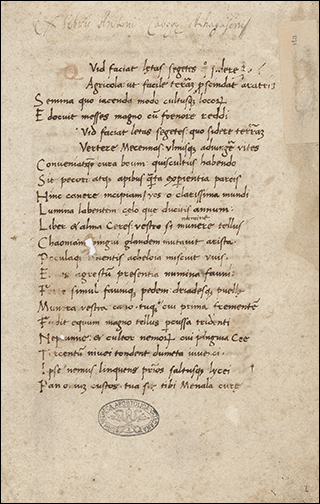 Petri Antoni
Vid faciat letas segetes q° sidere
Agricola ut facile terrā pscindat aratris
Semina quo iacenda modo cultusq; locoꝝ
E docuit messes magno cū fenore reddi
Vid faciat letas segetes quo sidere terrā
Vertere Mecenas vlmisq; adiungere vites
Conveniat que cura boum quis cultus habendo
Sit pecori atq; apibus quāta experientia parcis
Hinc canere incipiam vos o clarissima mundi
Lumina labentem celo que ducitis annum
Liber & alma Ceres vestro si munere tellus
Chaoniam pingui glandem mutavit arista
Poculaq; acheloia miscuit uvis
agrestum presentia numina fauni
simul faunique pedem driadesq; puelle
Munera vestra cano tuq; o cui prima frementē
Fudit equum magno tellus pcussa tridenti
& cultor nemoꝝ cui pinguia Cee
nivei tondent dumeta iuvenci
Ipse nemus linquens prios saltusq; lycei
Pan oviū custos tua si tibi Menala cure